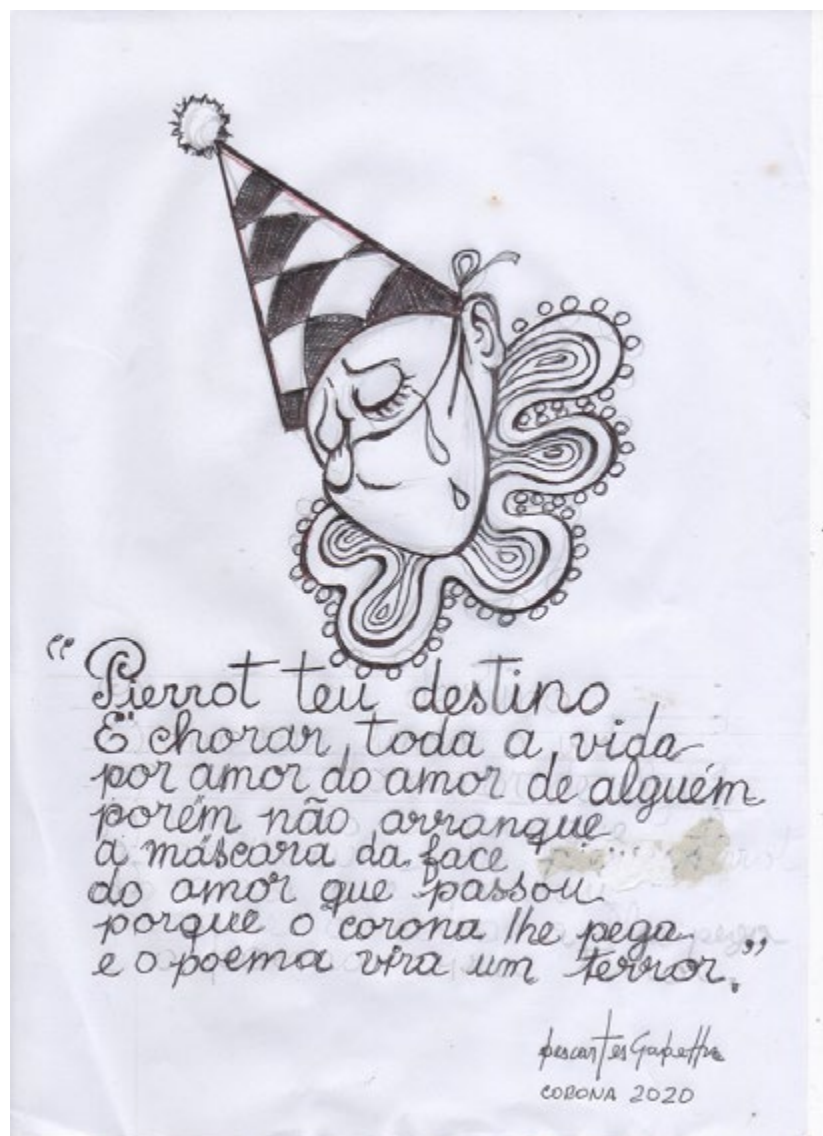 “Pierrot teu destino
É chorar toda a vida
por amor do amor de alguém
porém não arranque
a máscara da face
do amor que passou
porque o corona lhe pega
e o poema vira um terror.”
CORONA 2020